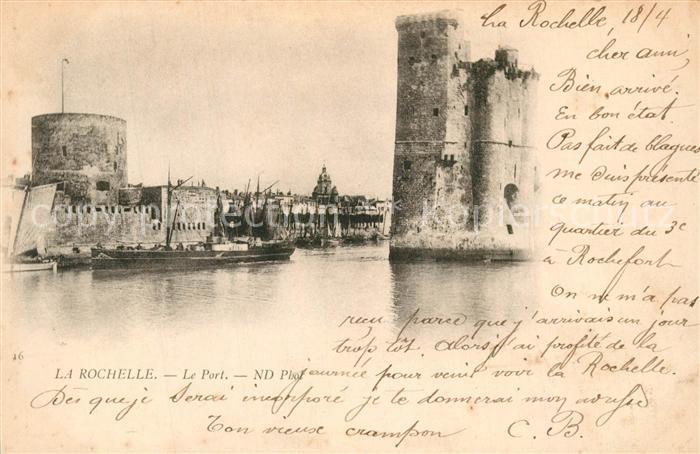 La Rochelle, 18/4
cher ami,
Bien arrivé.
En bon état.
Pas fait de blagues
me suis présenté
ce matin au
quartier du 3e
à Rochefort
On m'a pas
reçu parce que j'arrivais un jour
trop tôt. Alors j'ai profité de la
journée pour venir voir la Rochelle.
16
LA ROCHELLE. — Le Port. — ND Phot
Dès que je serai incorporé je te donnerai mon adresse
Ton vieux crampon C. B.
copyright
kopierschutz